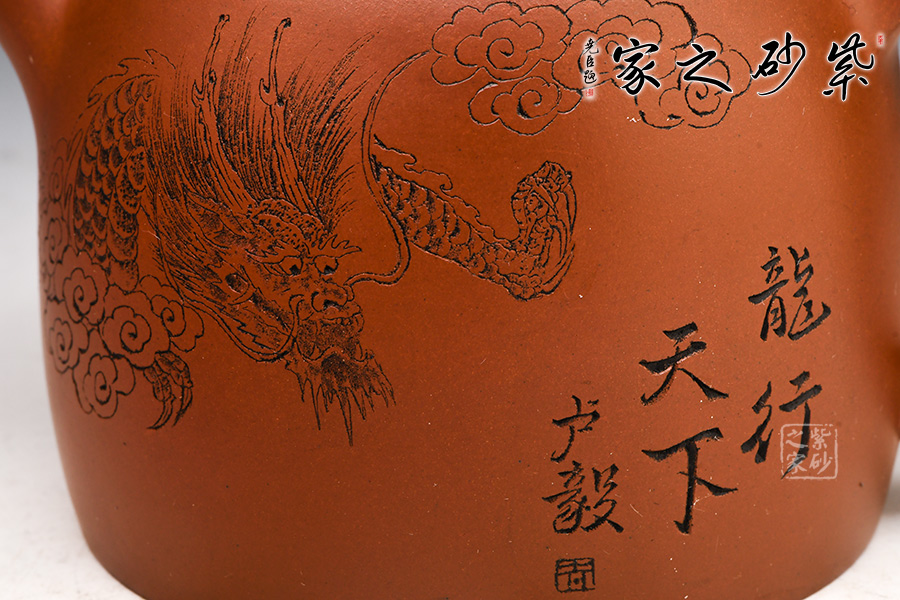 紫砂之家
尧臣题
龍行
天下
卢毅
紫砂之家